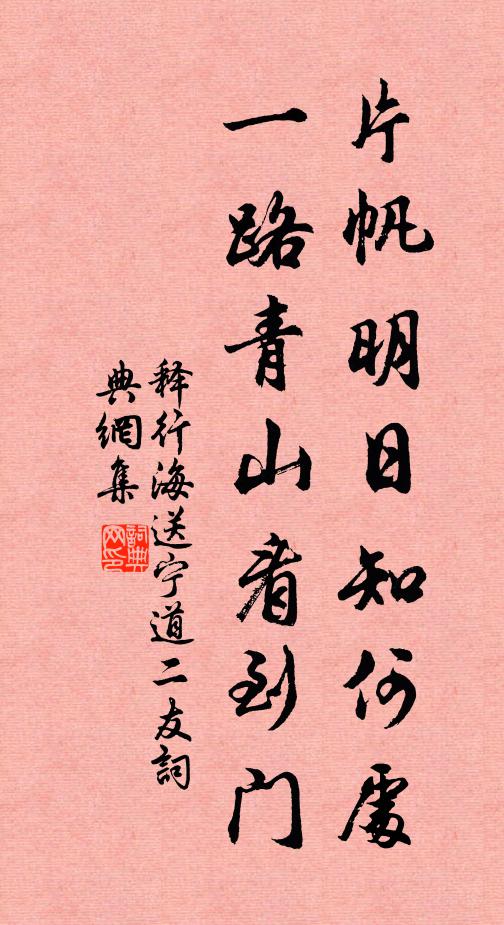 片帆明日知何處
一路青山看到門
释行海送宁道二友詞
典網集
詞典
网印